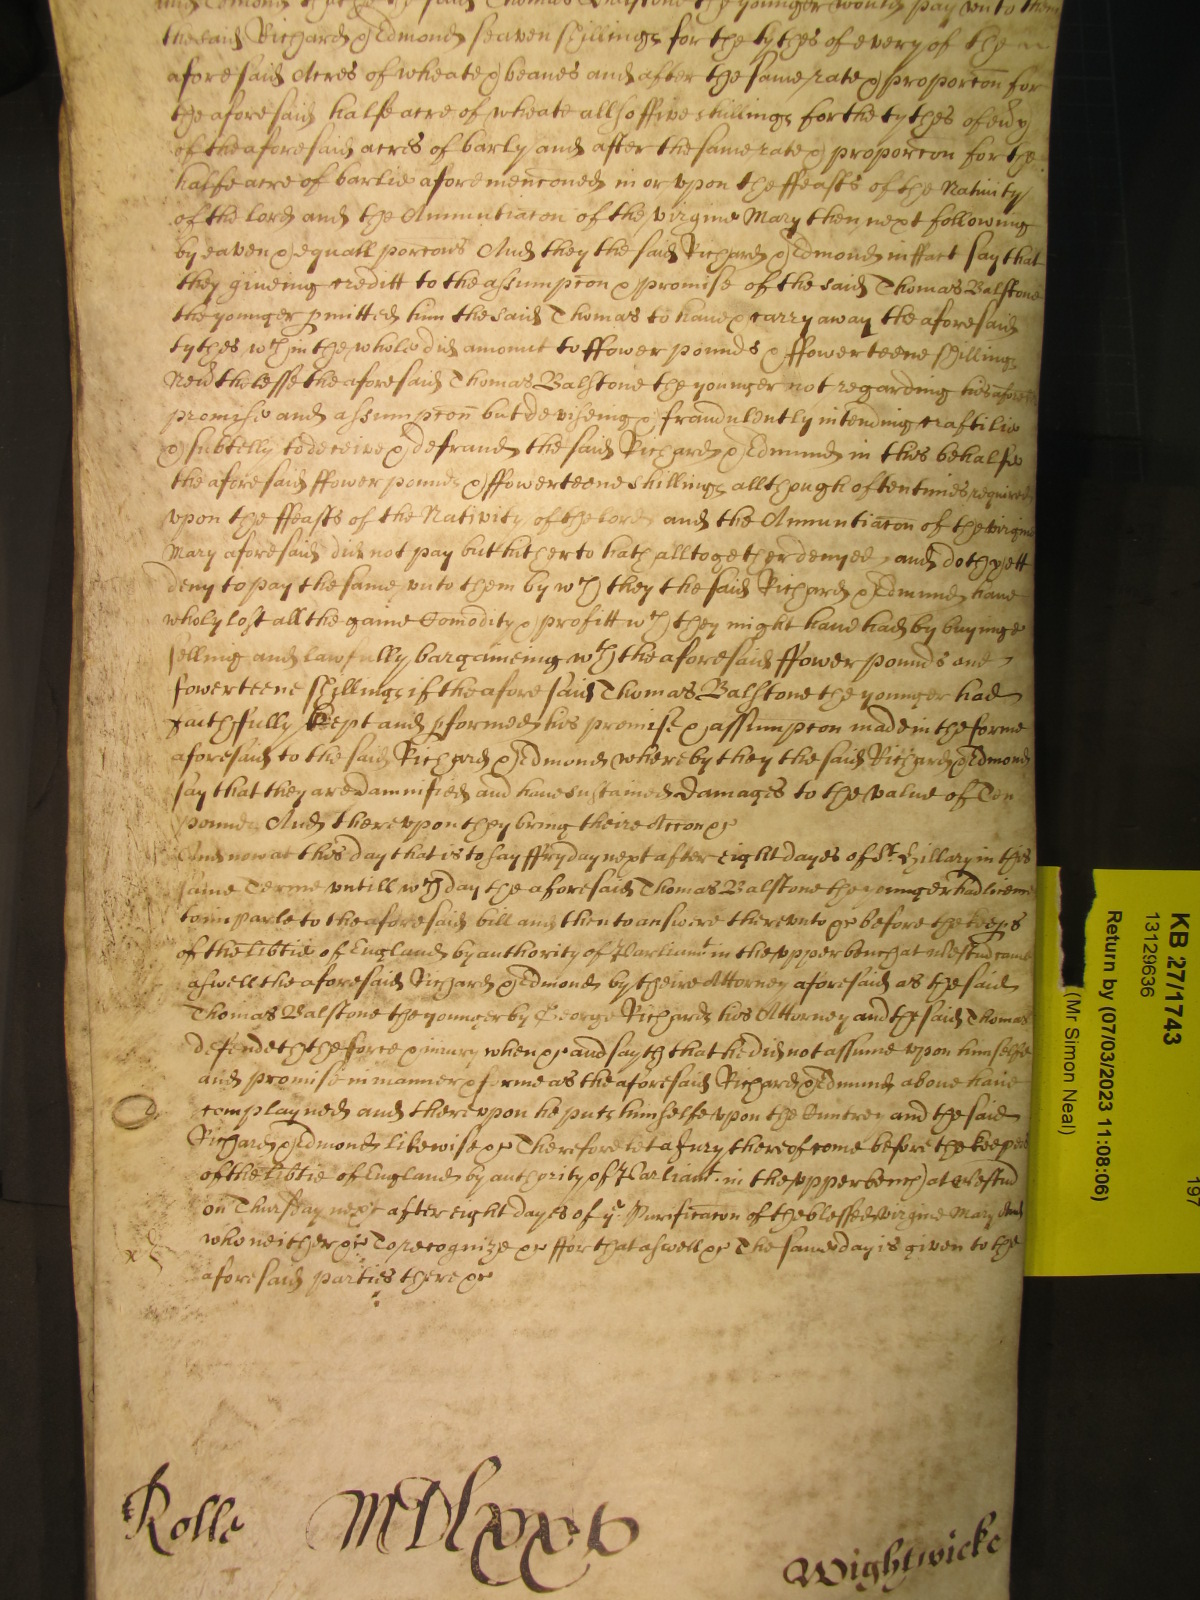 and Edmond that he the said Thomas Balstone the younger would pay unto them
the said Richard & Edmond seaven shillings for the tythes of every of the
aforesaid Acres of wheate & beanes and after the same rate & proporcon for
the aforesaid halfe acre of wheate allso ffive shillings for the tythes of eu'y
of the aforesaid acres of barly and after the same rate & proporcon for the
halfe acre of barlie aforemenconed in or vpon the ffeasts of the Nativity
of the lord and the Annuntiacon of the virgine Mary then next following
by eaven & equall porcons And they the said Richard & Edmond in ffact say that
they giueing creditt to the assumpcon & promise of the said Thomas Balstone
the younger p'mitted him the said Thomas to haue & carry away the aforesaid
tythes wch in the whole did amount to ffower pounds & ffowerteene shillings
Neu'thelesse the aforesaid Thomas Balstone the younger not regarding his afores
promise and assumpcon but deviseing & fraudulently intending craftilie
& subtelly to deceive & defraud the said Richard & Edmund in this behalfe
the aforesaid ffower pounds & ffowerteene shillings allthough oftentimes required
vpon the ffeasts of the Nativity of the lord and the Annuntiacon of the virgine
Mary aforesaid did not pay but hitherto hath alltogether denyed and doth yett
deny to pay the same vnto them by wch they the said Richard & Edmund haue
wholy lost all the gaine Comodity & profitt wch they might haue had by buyinge
selling and lawfully bargaineing wth the aforesaid ffower pounds and
fowerteene shillings if the aforesaid Thomas Balstone the younger had
faithfully kept and p'formed his promise & assumpcon made in the forme
aforesaid to the said Richard & Edmond whereby they the said Richard & Edmond
say that they are damnified and haue sustained damages to the value of Ten
pounds And therevpon they bring theire Accon &c
And now at this day that is to say ffryday next after eight dayes of St. Hillary in this
same Terme vntill wch day the aforesaid Thomas Balstone the younger had licence
to imparle to the aforesaid bill and then to answere therevnto &c before the keep's
of the lib'tie of England by authority of Parliamt. in the vpper bench at Westm' came
aswell the aforesaid Richard & Edmond by theire Attorney aforesaid as the said
Thomas Balstone the younger by George Richards his Attorney and the said Thomas
defendeth the force & iniury when &c and sayth that he did not assume vpon himselfe
and promise in manner & forme as the aforesaid Richard & Edmund aboue haue
complayned and therevpon he puts himselfe vpon the Cuntrey and the said
Richard & Edmond likewise &c Therefore let a Jury thereof come before the keepers
of the lib'tie of England by authority of Parliamt. in the vpper bench at Westm'
on Thursday next after eight dayes of ye Purificacon of the blessed virgine Mary And
who neither &c To recognize &c ffor that aswell &c The same day is given to the
aforesaid parties there &c
Rolle MDlxxv
Wightwicke
KB 27/1743
13129636
Return by (07/03/2023 11:08:06)
(Mr Simon Neal)
197